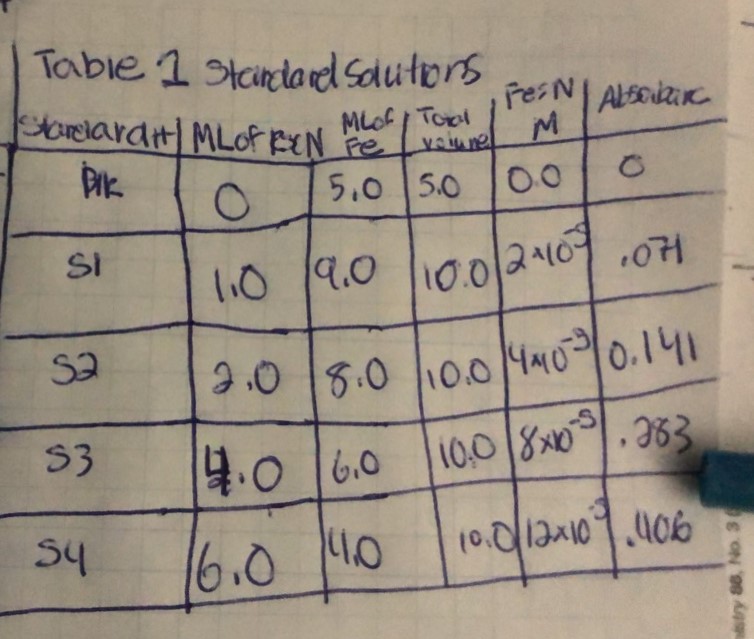 Table 1 Standard Solutions
Standard# | ML of RxN | ML of Fe | Total volume | Fe=N M | Absorbance
Blk | 0 | 5.0 | 5.0 | 0.0 | 0
S1 | 1.0 | 9.0 | 10.0 | 2x10⁻⁵ | .071
S2 | 2.0 | 8.0 | 10.0 | 4x10⁻⁵ | 0.141
S3 | 4.0 | 6.0 | 10.0 | 8x10⁻⁵ | .283
S4 | 6.0 | 4.0 | 10.0 | 12x10⁻⁵ | .406
istry 88, No. 3